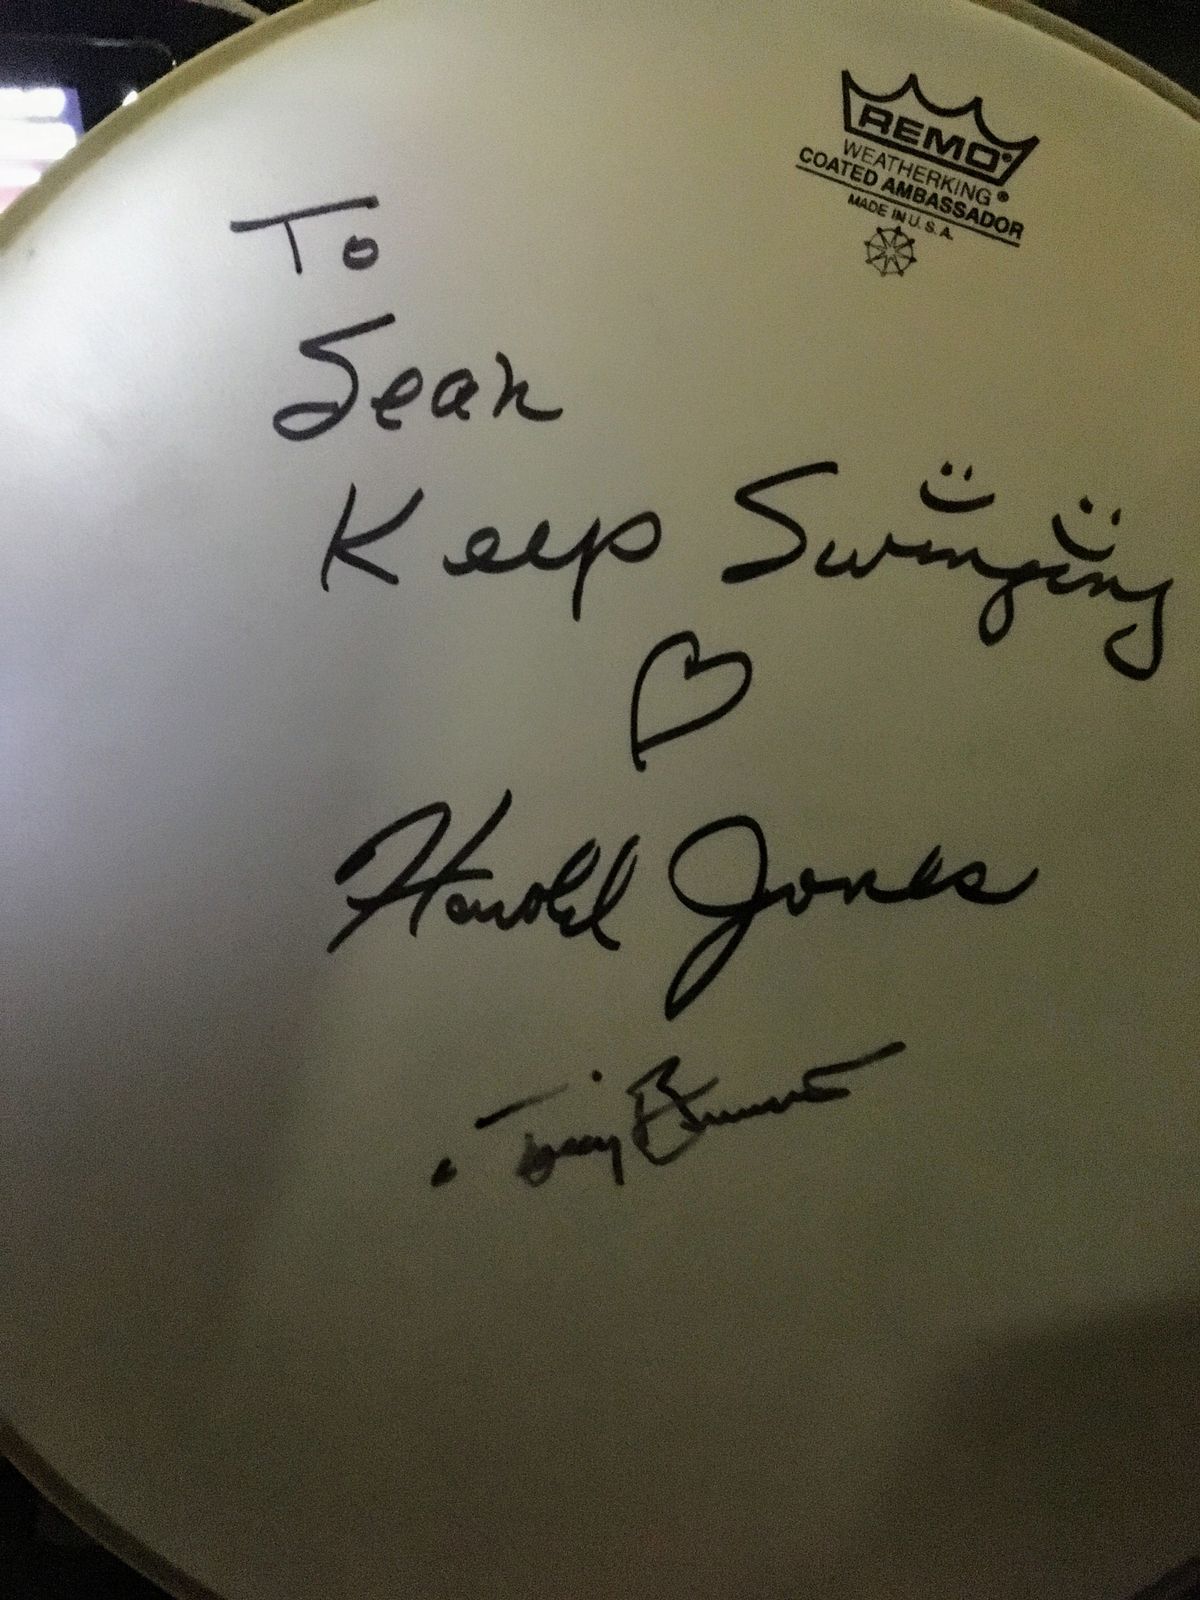 REMO®
WEATHERKING®
COATED AMBASSADOR
MADE IN U.S.A.
To
Sean
Keep Swinging
Harold Jones
Tony Bennett